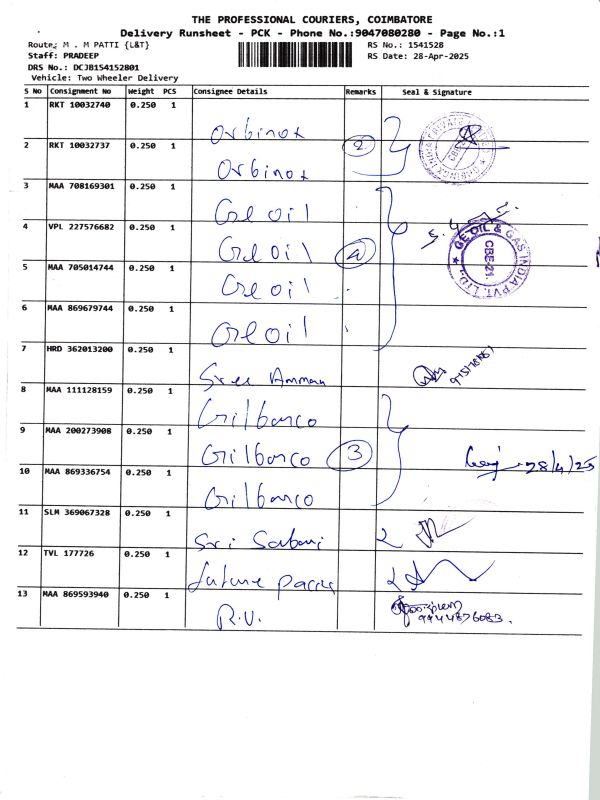 THE PROFESSIONAL COURIERS, COIMBATORE
Delivery Runsheet - PCK - Phone No.:9047080280 - Page No.:1
Route: M . M PATTI {L&T} RS No.: 1541528
Staff: PRADEEP RS Date: 28-Apr-2025
DRS No.: DCJB154152801
Vehicle: Two Wheeler Delivery
S No Consignment No Weight PCS Consignee Details Remarks Seal & Signature
1 RKT 10032740 0.250 1 Orbinox
2 RKT 10032737 0.250 1 Orbinox 2
3 MAA 708169301 0.250 1 Ge oil
4 VPL 227576682 0.250 1 Ge oil 4
GE OIL & GAS INDIA PVT. LTD. CBE-21.
5 MAA 705014744 0.250 1 Ge oil
6 MAA 869679744 0.250 1 Ge oil
7 HRD 362013200 0.250 1 Sree Amman
8 MAA 111128159 0.250 1 Gilbarco
9 MAA 200273908 0.250 1 Gilbarco 3 28/4/25
10 MAA 869336754 0.250 1 Gilbarco
11 SLM 369067328 0.250 1 Sri Sabari
12 TVL 177726 0.250 1 future
13 MAA 869593940 0.250 1 R.V. 9944876083.